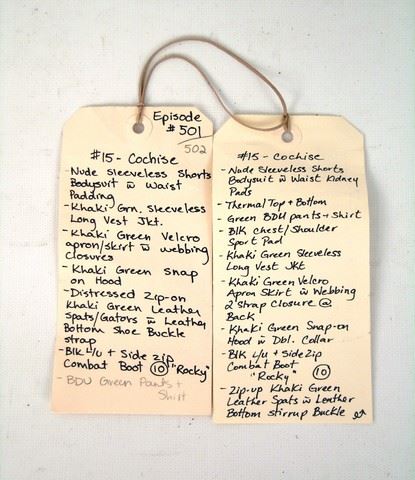 Episode
# 501
502
#15 - Cochise
- Nude Sleeveless Shorts
Bodysuit w Waist
Padding
- Khaki Grn. Sleeveless
Long Vest Jkt.
- Khaki Green Velcro
apron/skirt w webbing
closures
- Khaki Green Snap
on Hood
- Distressed Zip-on
Khaki Green Leather
Spats/Gators w Leather
Bottom Shoe Buckle
strap
- Blk L/u + Side zip
Combat Boot 10 "Rocky"
- BDU Green Pants +
Shirt
#15 - Cochise
- Nude Sleeveless Shorts
Bodysuit w Waist Kidney
Pads
- Thermal Top + Bottom
- Green BDU pants + Shirt
- Blk Chest/Shoulder
Sport Pad
- Khaki Green Sleeveless
Long Vest Jkt
- Khaki Green Velcro
Apron Skirt w Webbing
2 Strap Closure @
Back
- Khaki Green Snap-on
Hood w Dbl. Collar
- Blk L/u + Side Zip
Combat Boot
"Rocky" 10
- Zip-up Khaki Green
Leather Spats w Leather
Bottom stirrup Buckle